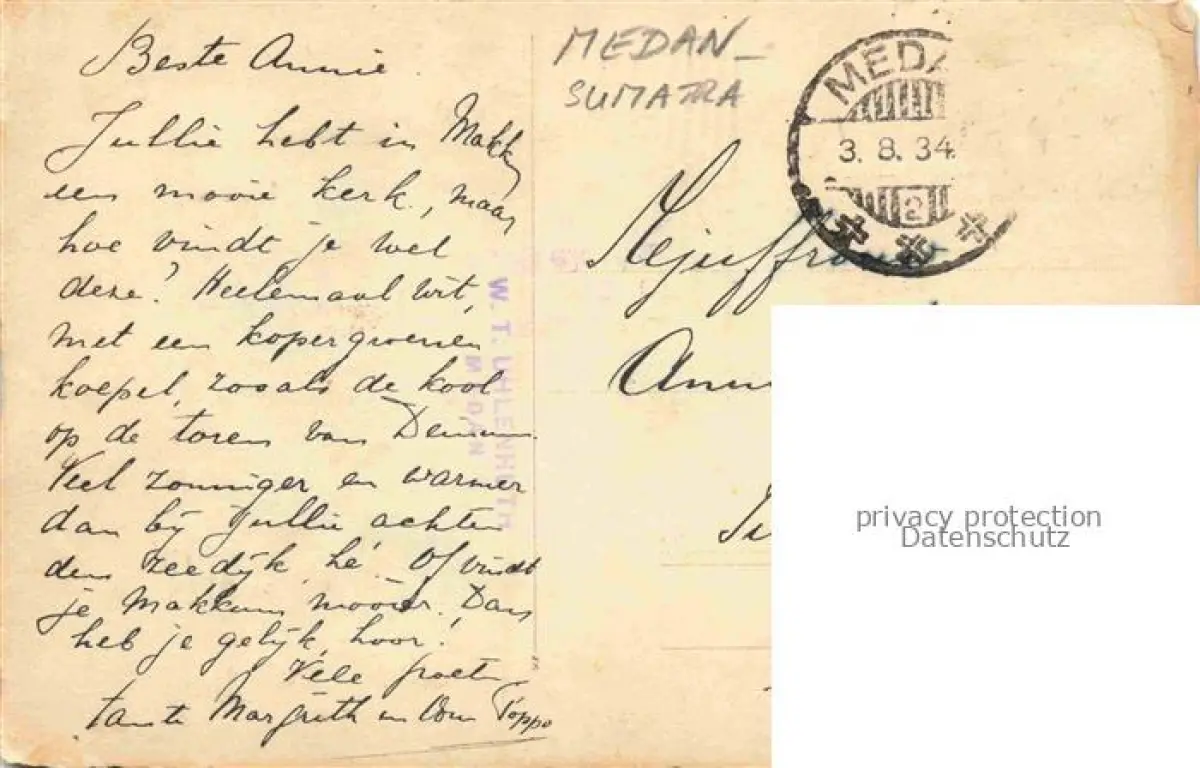 Beste Annie.
Jullie hebt in Makkum
een mooie kerk, maar
hoe vindt je wel
deze? Heelemaal wit,
met een kopergroenen
koepel, zooals de kool
op de toren van
Veel zonniger en warmer
dan bij jullie achter
den zeedijk, hè! Of vindt
je Makkum mooier. Dan
heb je gelijk, hoor!
Vele groeten
tante Margrieth en Oom Poppo
MEDAN -
SUMATRA
MEDA
3. 8. 34.
2
Mejuffrouw
Ann
W. T. UHLENHUTH
MEDAN
privacy protection
Datenschutz